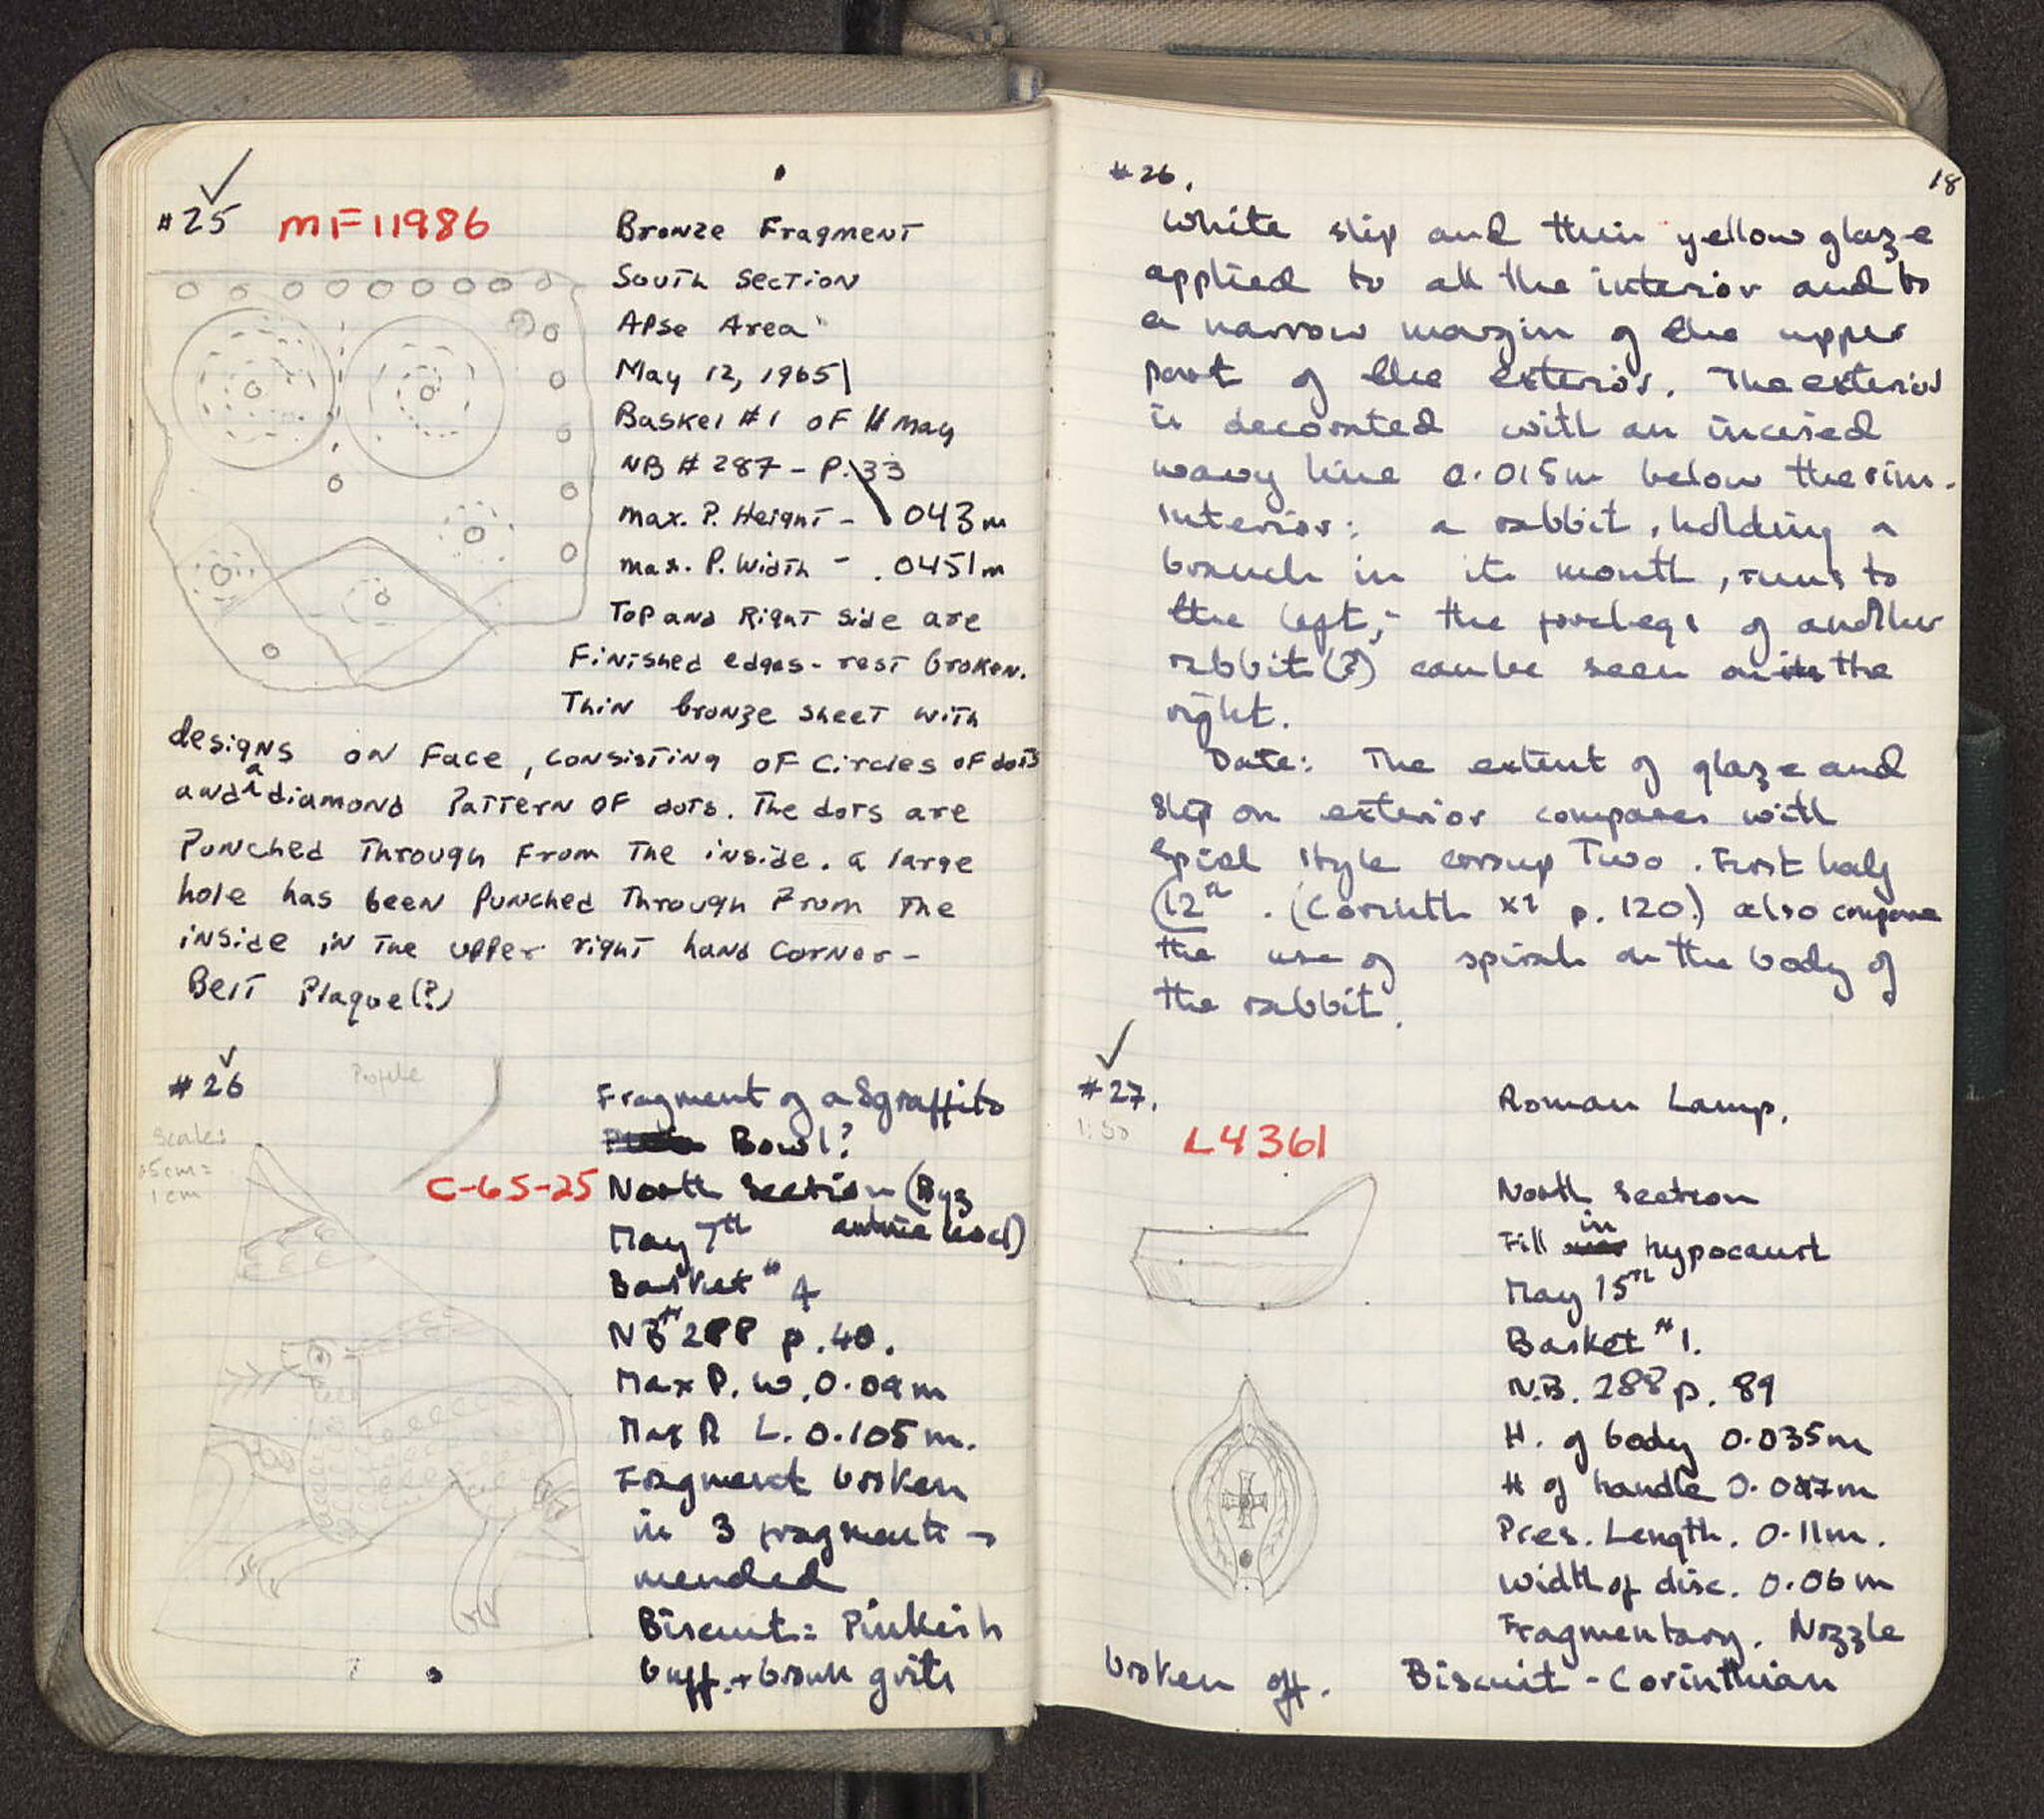 #25 MF11986 Bronze Fragment
South Section
Apse Area
May 12, 1965
Basket #1 of 11 may
NB # 287 - P. 33
max. P. Height - .043 m
max. P. Width - .0451m
Top and Right side are
Finished edges - rest broken.
Thin bronze sheet with
designs on Face, consisting of Circles of dots
and a diamond Pattern of dots. The dots are
Punched Through From The inside. a large
hole has been Punched Through From The
inside in The upper right hand Corner -
Belt Plaque(?)
#26 Profile
Scale:
.5cm =
1 cm
Fragment of a Sgraffito
Bowl?
C-65-25 North Section (Byz
May 7th level)
Basket # 4
NB# 288 p. 40.
Max P. W. 0.09m
Max P. L. 0.105m.
Fragment broken
in 3 fragments →
mended
Biscuit = Pinkish
buff. + brown grits
18
#26.
White slip and thin yellow glaze
applied to all the interior and to
a narrow margin of the upper
part of the exterior. The exterior
is decorated with an incised
wavy line 0.015m below the rim.
Interior: a rabbit, holding a
branch in its mouth, runs to
the left; the forelegs of another
rabbit(?) can be seen on the
right.
Date: The extent of glaze and
slip on exterior compares with
Spiral Style Group Two. First half
12th. (Corinth XI p. 120.) also compare
the use of spirals on the body of
the rabbit.
#27. Roman Lamp.
L4361
North Section
Fill in hypocaust
May 15th
Basket #1.
N.B. 288 p. 89
H. of body 0.035m
H of handle 0.047m
Pres. Length. 0.11m.
Width of disc. 0.06m
Fragmentary. Nozzle
broken off. Biscuit - Corinthian